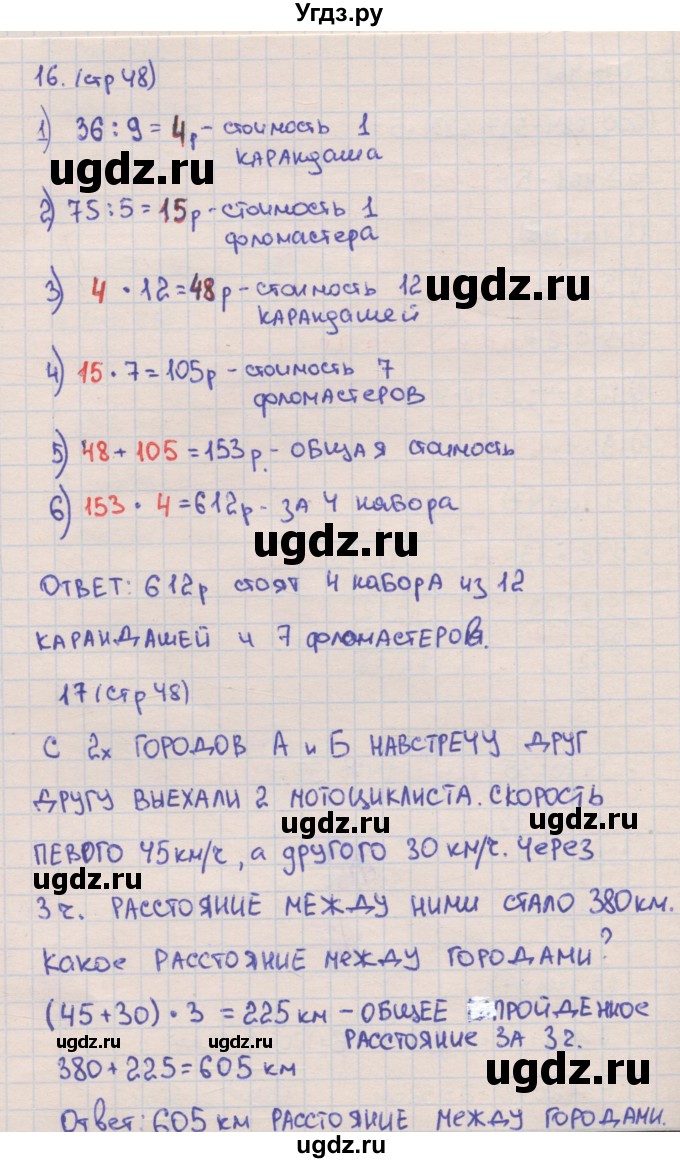 Угдз.ру
16. (стр 48)
1) 36 : 9 = 4р - стоимость 1
карандаша
ugdz.ru
2) 75 : 5 = 15р - стоимость 1
фломастера
3) 4 · 12 = 48р - стоимость 12
ugdz.ru
карандашей
4) 15 · 7 = 105р - стоимость 7
фломастеров
5) 48 + 105 = 153р. - общая стоимость
6) 153 · 4 = 612р - за 4 набора
ugdz.ru
Ответ: 612р стоят 4 набора из 12
карандашей и 7 фломастеров.
17 (стр 48)
С 2х городов А и Б навстречу друг
другу выехали 2 мотоциклиста. Скорость
ugdz.ru
певого 45 км/ч, а другого 30 км/ч. Через
ugdz.ru
3 ч. расстояние между ними стало 380 км.
Какое расстояние между городами?
(45+30) · 3 = 225 км - общее пройденое
ugdz.ru
расстояние за 3 ч.
ugdz.ru
380 + 225 = 605 км
ugdz.ru
Ответ: 605 км расстояние между городами.
ugdz.ru